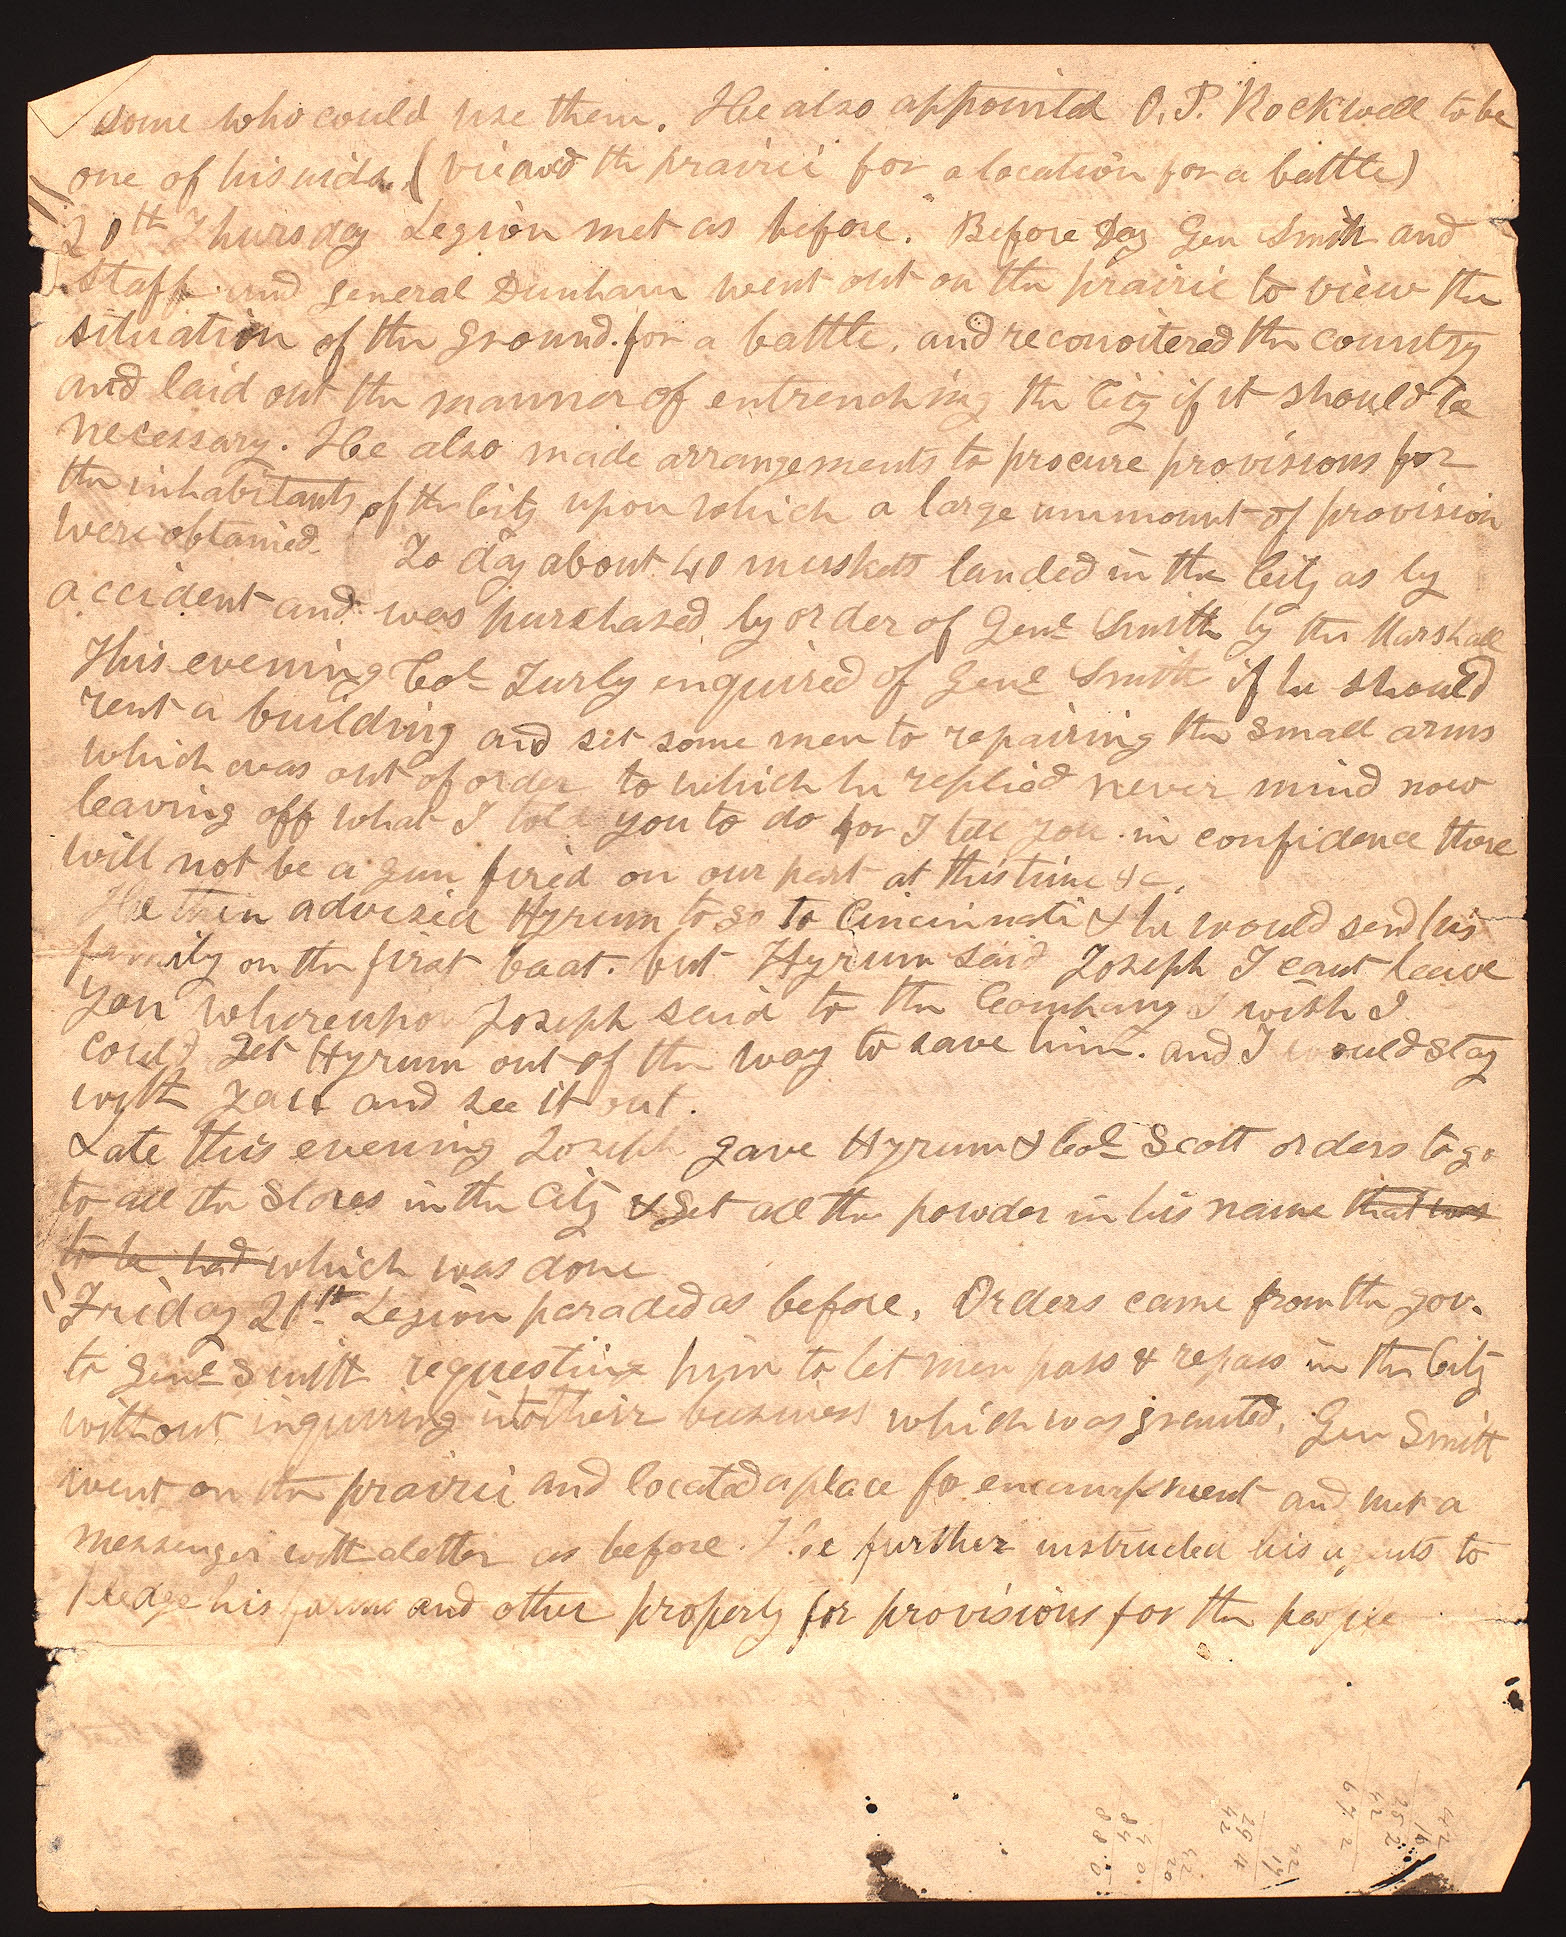 some who could use them. He also appointed O. P. Rockwell to be
one of his aids. (viewed the prairie for a location for a battle)
20th Thursday Legion met as before. Before Day Gen Smith and
staff and general Dunham went out on the prairie to view the
situation of the ground for a battle. and reconoitered the country
and laid out the manner of entrenching the City if it should be
necessary. He also made arrangements to procure provisions for
the inhabitants of the City upon which a large ammount of provision
were obtained. To day about 40 muskets landed in the City as by
accident and was purchased by order of Genl Smith by the Marshall
This evening Col Turly enquired of Genl Smith if he should
rent a building and set some men to repairing the small arms
which was out of order to which he replied never mind now
leaving off what I told you to do for I tell you in confidence there
will not be a gun fired on our part at this time &c.
He then advised Hyrum to go to Cincinnati & he would send his
family on the first boat. but Hyrum said Joseph I cant leave
you whereupon Joseph said to the Company I wish I
could get Hyrum out of the way to save him. and I would stay
with you and see it out.
Late this evening Joseph gave Hyrum & Col Scott orders to go
to all the stores in the City & get all the powder in his name that was
to be had which was done
Friday 21st Legion paraded as before. Orders came from the gov.
to Genl Smith requesting him to let men pass & repass in the City
without inquiring into their business which was granted. Gen Smith
went on the prairie and located a place for encampment and met a
messenger with a letter as before. He further instructed his agents to
pledge his farms and other property for provisions for the people
42
16
252
42
672
42
17
294
42
42
20
840
880